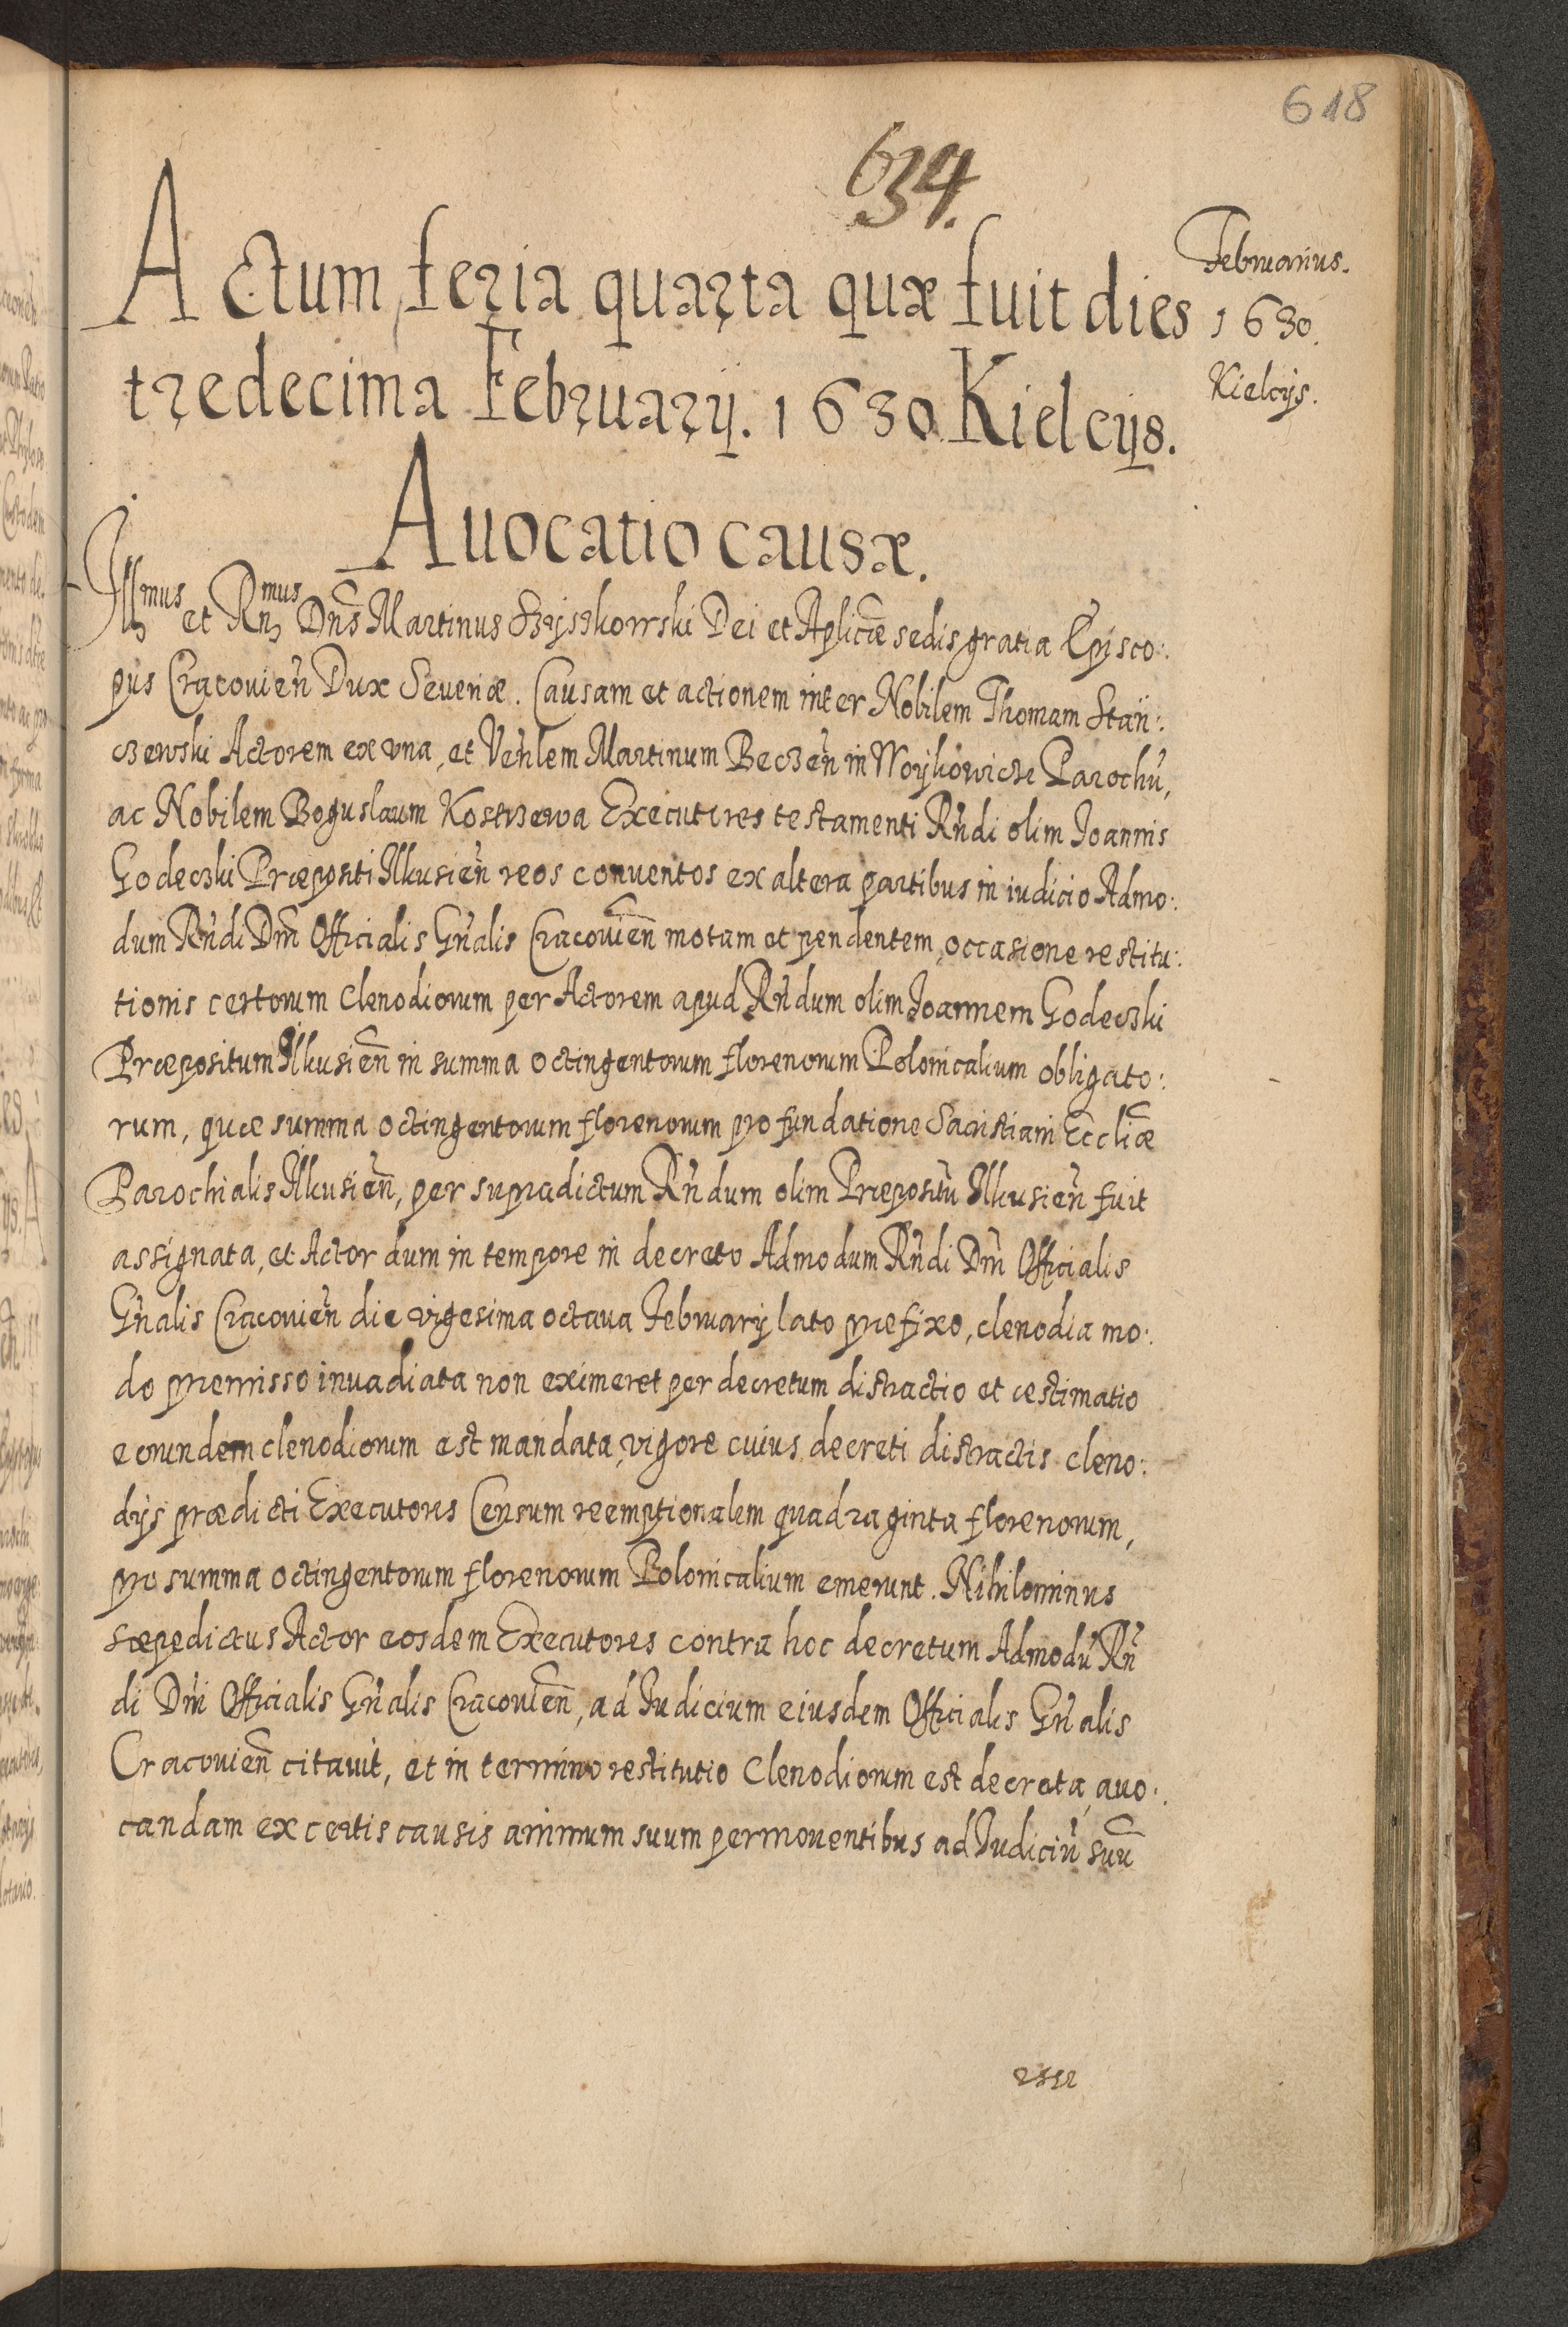 618
634.
Februarius.
1630.
Kielcijs.
Actum feria quarta quæ fuit dies
tredecima Februarij. 1630 Kielcijs.
Auocatio causæ.
Illmus et Rndmus Dns̄ Martinus Szyszkowski Dei et Aplicæ sedis gratia Episco:
pus Cracouien̄ Dux Seueriæ. Causam et actionem inter Nobilem Thomam Stan̄:
czewski Actorem ex vna, et Ven̄lem Martinum Beczen̄ in Woykowicze Parochū,
ac Nobilem Boguslaum Kostrzewa Executores testamenti Rn̄di olim Joannis
Godeczki Præpositi Ilkusien̄ reos conuentos ex altera partibus in iudicio Admo:
dum Rn̄di Dn̄i Officialis Gn̄alis Cracouien̄ motam et pendentem, occasione restitu:
tionis certorum clenodiorum per Actorem apud Rn̄dum olim Joannem Godeczki
Præpositum Ilkusien̄ in summa octingentorum florenorum Polonicalium obligato:
rum, quæ summa octingentorum florenorum pro fundatione Sacristiani Eccliæ
Parochialis Ilkusien̄, per supradictum Rn̄dum olim Præpositū Ilkusien̄ fuit
assignata, et Actor dum in tempore in decreto Admodum Rn̄di Dn̄i Officialis
Gn̄alis Cracouien̄ die vigesima octaua Februarij lato prefixo, clenodia mo:
do premisso inuadiata non eximeret per decretum distractio et æstimatio
eorundem clenodiorum est mandata, vigore cuius decreti distractis cleno:
dijs prædicti Executores Censum reemptionalem quadraginta florenorum,
pro summa octingentorum florenorum Polonicalium emerunt. Nihilominus
sæpedictus Actor eosdem Executores contra hoc decretum Admodū Rn̄
di Dn̄i Officialis Gn̄alis Cracouien̄, ad Iudicium eiusdem Officialis Gn̄alis
Cracouien̄ citauit, et in termino restitutio Clenodiorum est decreta, auo:
candam ex certis causis animum suum permouentibus ad Iudiciū suū